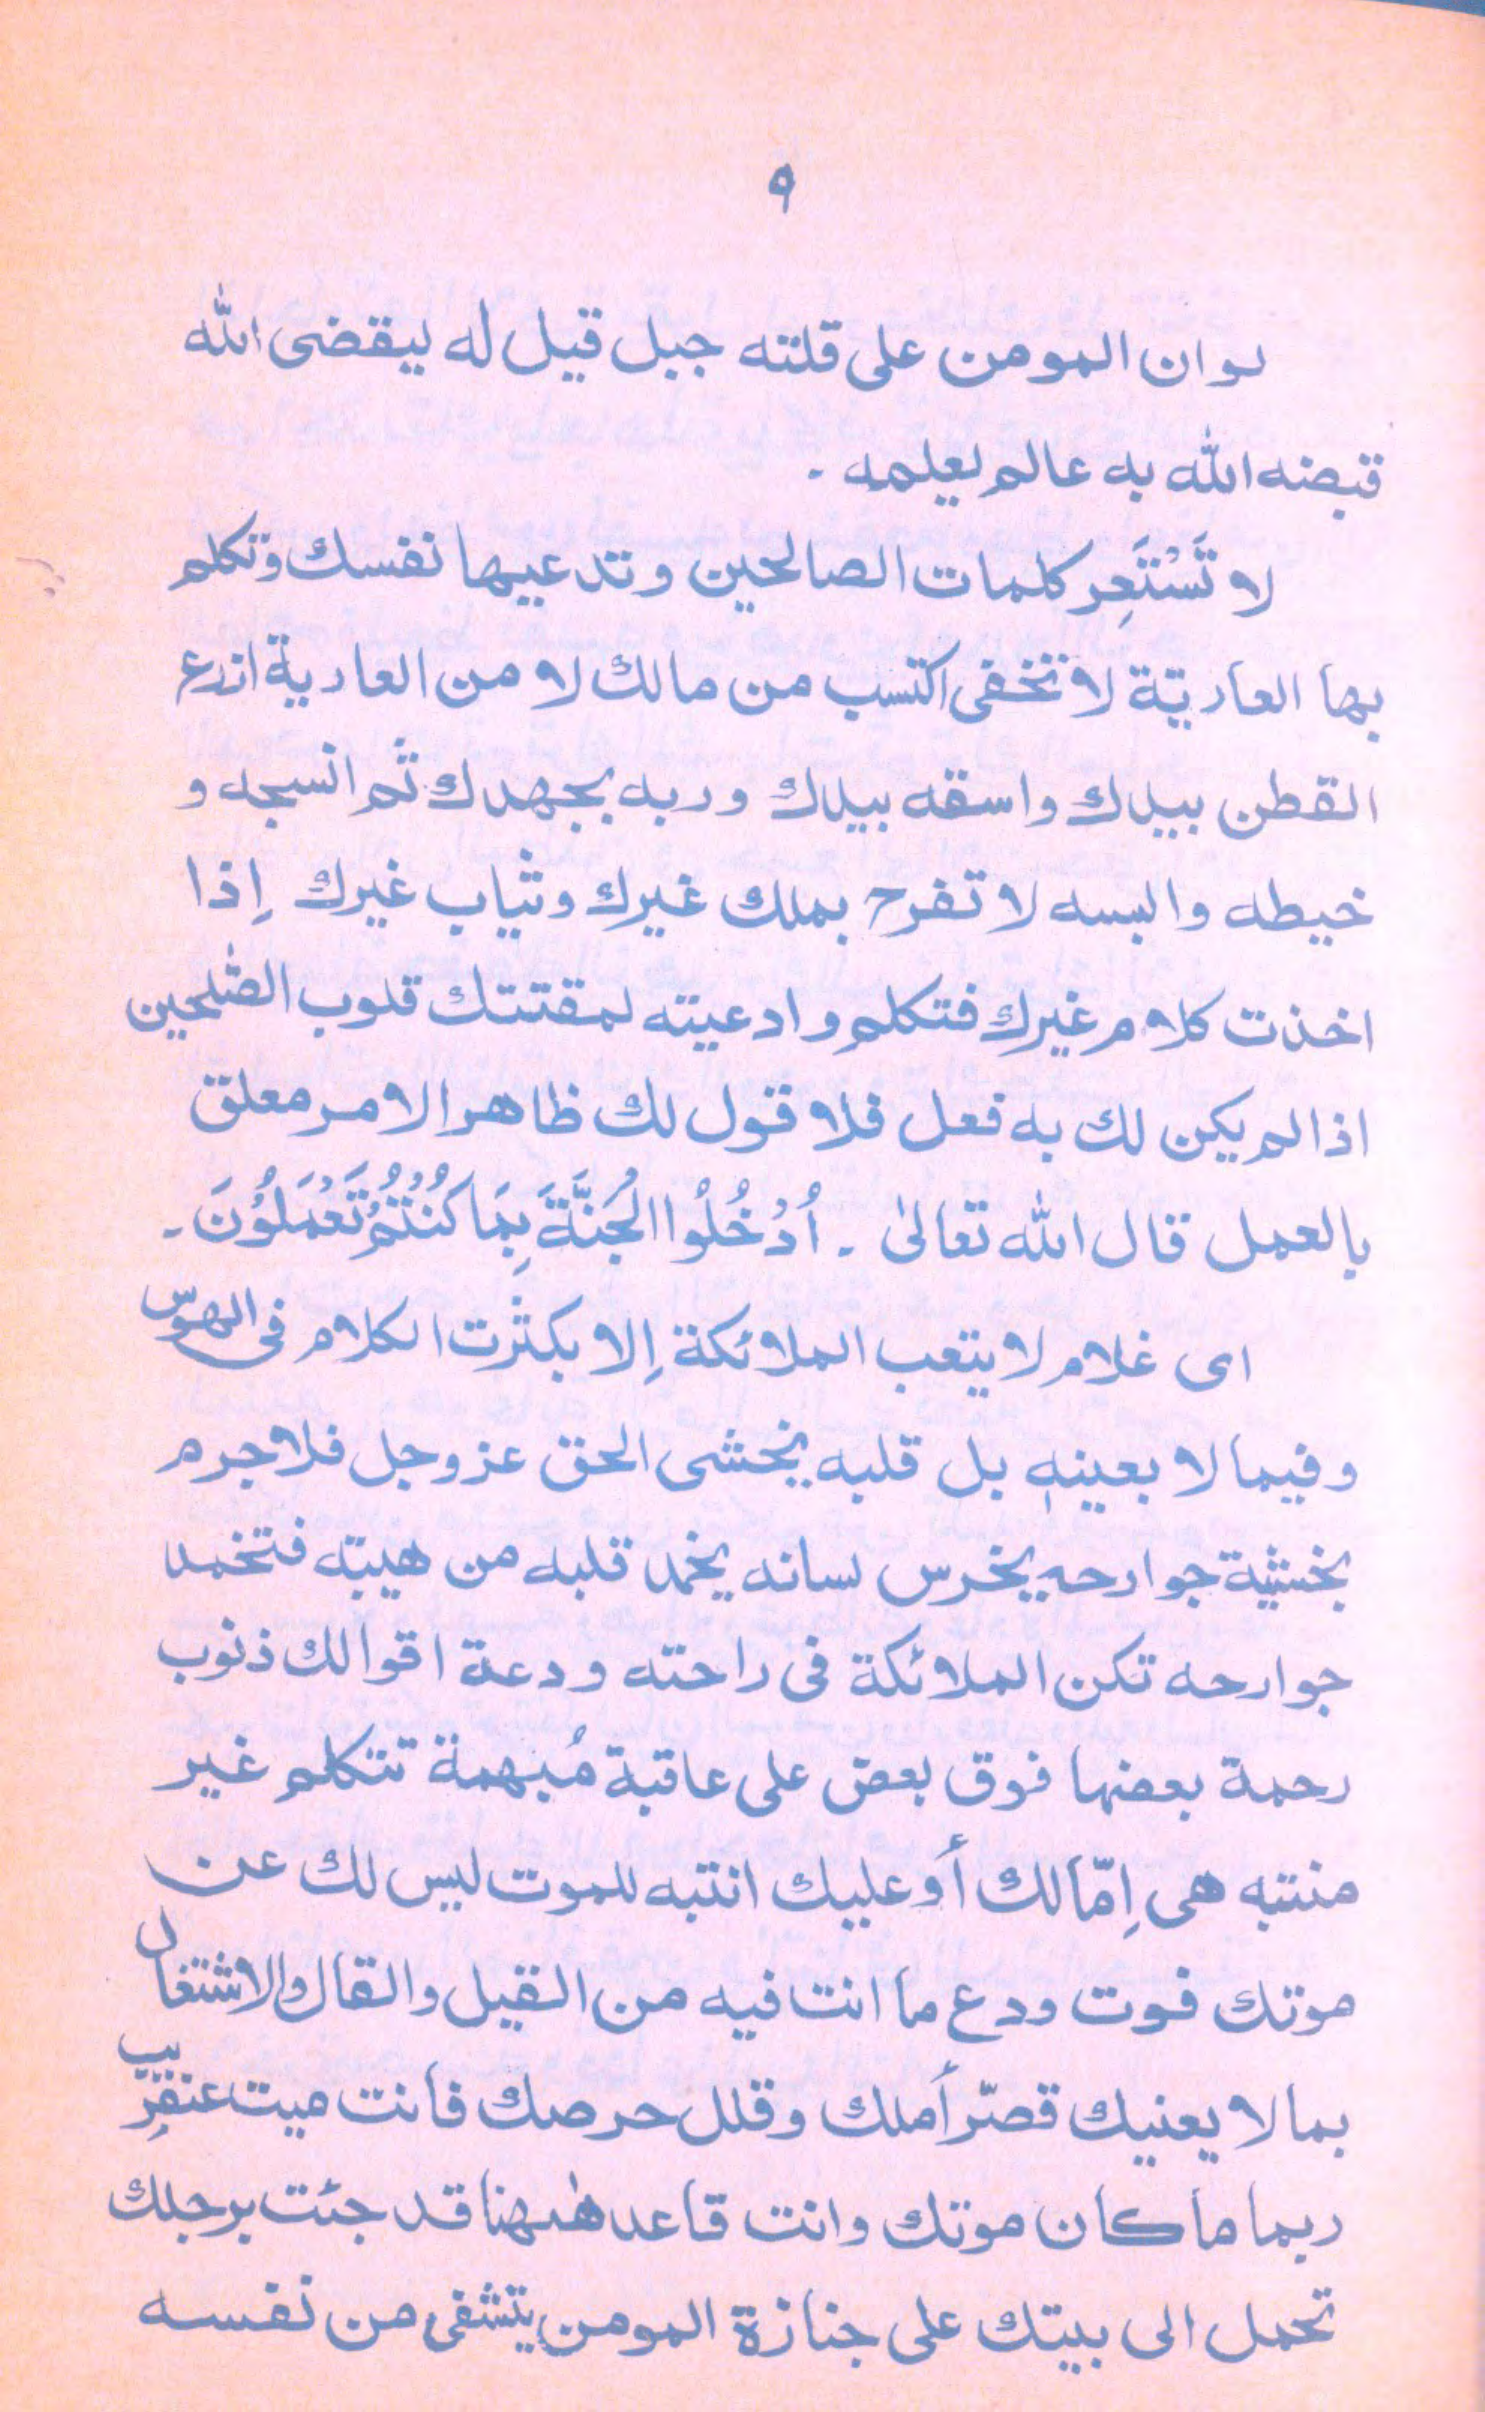 ٩
لو ان المومن على قلته جبل قيل له ليقضى الله
قبضه الله به عالم يعلمه ۔
لا تَسْتَعِر كلمات الصالحين وتدعيها نفسك وتكلم
بها العاريّة لا تخفى اكتسب من مالك لا من العارية ازرع
القطن بيدك واسقه بيدك وربه بجهدك ثم انسجه و
خيطه والبسه لا تفرح بملك غيرك وثياب غيرك إذا
اخذت كلام غيرك فتكلم وادعيته لمقتتك قلوب الصّٰلحين
اذا لم يكن لك به فعل فلا قول لك ظاهر الامر معلق
بالعمل قال الله تعالىٰ ۔ اُدْخُلُوا الْجَنَّةَ بِمَا كُنْتُمْ تَعْمَلُوْنَ ۔
اى غلام لا يتعب الملائكة إلا بكثرت الكلام فى الهوّس
وفيما لا بعينهٖ بل قلبه يخشى الحق عز وجل فلا جرم
بخشية جوارحهٖ يخرس لسانه يخمد قلبه من هيبته فتخمد
جوارحه تكن الملائكة فى راحته ودعة اقوالك ذنوب
رحمة بعضها فوق بعض على عاقبة مُبهمة تتكلم غير
منتبه هى إمّا لك أو عليك انتبه للموت ليس لك عن
موتك فوت ودع ما انت فيه من القيل والقال والاشتغال
بما لا يعنيك قصّر أملك وقلل حرصك فانت ميت عنقرِيّب
ربما ما كان موتك وانت قاعد هٰهنا قد جئت برجلك
تحمل الى بيتك على جنازة المومن يتشفى من نفسه